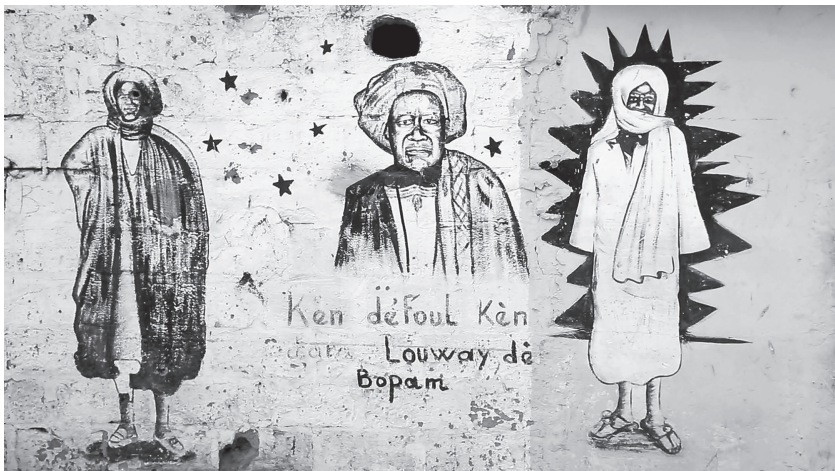 Kèn dëfoul Kèn
Louway dè
Bopam